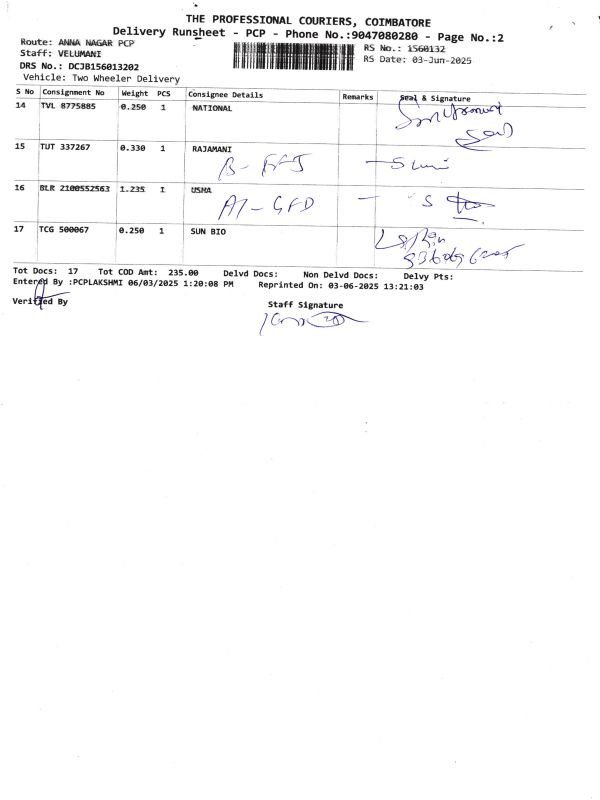 THE PROFESSIONAL COURIERS, COIMBATORE
Delivery Runsheet - PCP - Phone No.:9047080280 - Page No.:2
Route: ANNA NAGAR PCP
RS No.: 1560132
Staff: VELUMANI
RS Date: 03-Jun-2025
DRS No.: DCJB156013202
Vehicle: Two Wheeler Delivery
S No Consignment No Weight PCS Consignee Details Remarks Seal & Signature
14 TVL 8775885 0.250 1 NATIONAL
15 TUT 337267 0.330 1 RAJAMANI
16 BLR 2100552563 1.235 1 USHA
A1-GFD
17 TCG 500067 0.250 1 SUN BIO
Tot Docs: 17 Tot COD Amt: 235.00 Delvd Docs: Non Delvd Docs: Delvy Pts:
Entered By :PCPLAKSHMI 06/03/2025 1:20:08 PM Reprinted On: 03-06-2025 13:21:03
Verified By Staff Signature